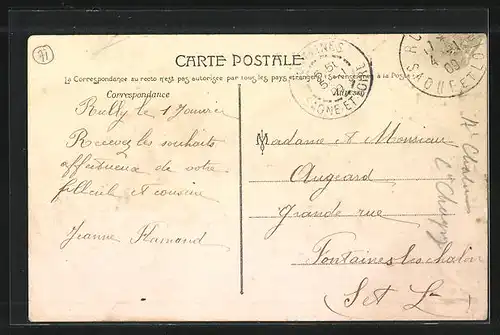 CARTE POSTALE
La Correspondance au recto n'est pas autorisée par tous les pays étrangers (Se renseigner à la Poste)
Correspondance
Adresse
Rully le 1 Janvier
Recevez les souhaits
affectueux de votre
filleul et cousine
Jeanne Flamand
Madame et Monsieur
Augeard
Grande rue
Fontaines les chalon
S et L
SAONE ET LOIRE
4
09